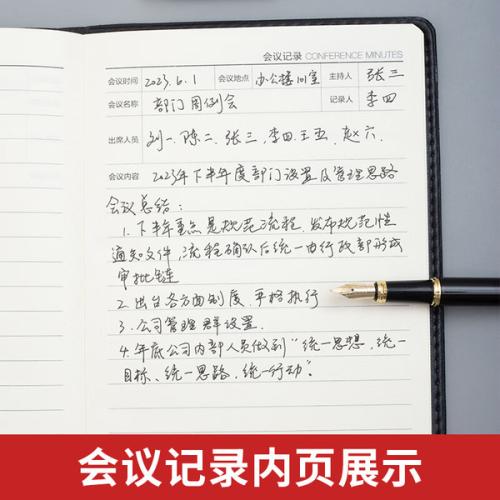 会议记录 CONFERENCE MINUTES
会议时间 2023.6.1 会议地点 办公楼101室 主持人 张三
会议名称 部门周例会 记录人 李四
出席人员 刘一、陈二、张三、李四、王五、赵六、
会议内容 2023年下半年度部门设置及管理思路
会议总结:
1. 下半年重点是规范流程,发布规范性
通知文件,流程确认后统一由行政部形成
审批链
2. 出台各方面制度,严格执行
3. 公司管理群设置.
4. 年底公司内部人员做到“统一思想、统一
目标、统一思路、统一行动”。
会议记录内页展示